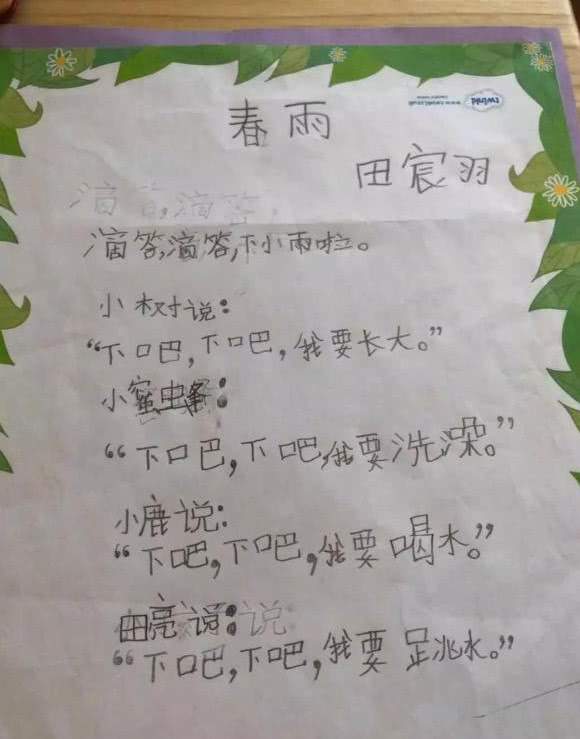 twinkl
www.twinkl.co.uk
春雨
田宸羽
滴答,滴答,
滴答,滴答,下小雨啦。
小树说:
“下吧,下吧,我要长大。”
小蜜蜂:
“下吧,下吧,我要洗澡。”
小鹿说:
“下吧,下吧,我要喝水。”
田亮说:说
“下吧,下吧,我要跳水。”